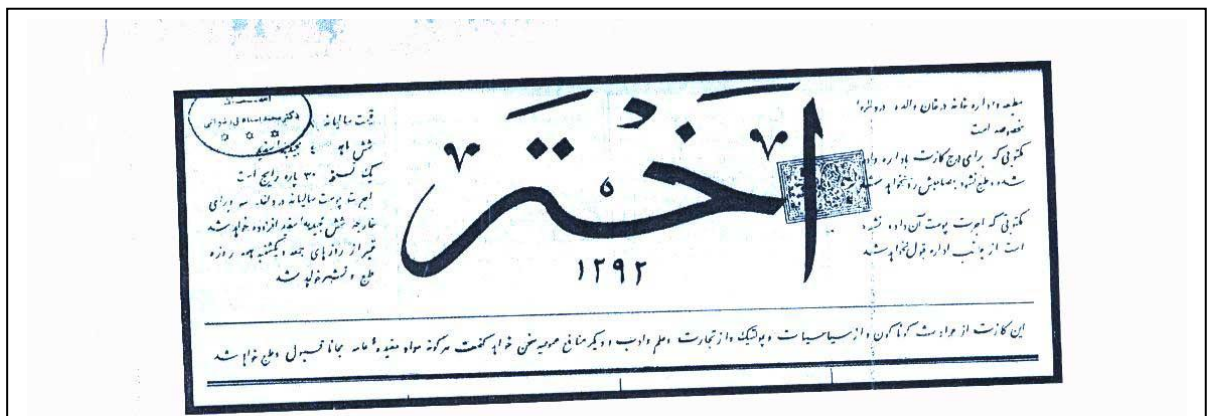 مطبعه و اداره خانه در خان والده در
مخصوصه است
مکتوبی که برای درج کازت باداره
شده و طبع نشود بصاحبش رد نخواهد شد
مکتوبی که اجرت پوست آن داده نشده
است از جانب اداره قبول نخواهد شد
اختر
۱۲۹۲
قیمت سالیانه
شش ماهه
یک نسخه ۳۰ پاره رایج است
اجرت پوست سالیانه برای
خارجه شش مجیدیه افزوده خواهد شد
غیر از روزهای جمعه و یکشنبه همه روزه
طبع و نشر خواهد شد
این کازت از حوادث کوناکون و از سیاسیات و پولتیک و از تجارت و علم و ادب و دیگر منافع عمومیه سخن خواهد کفت هر کونه مواد مفیده عامه مجانا قبول و طبع خواهد شد